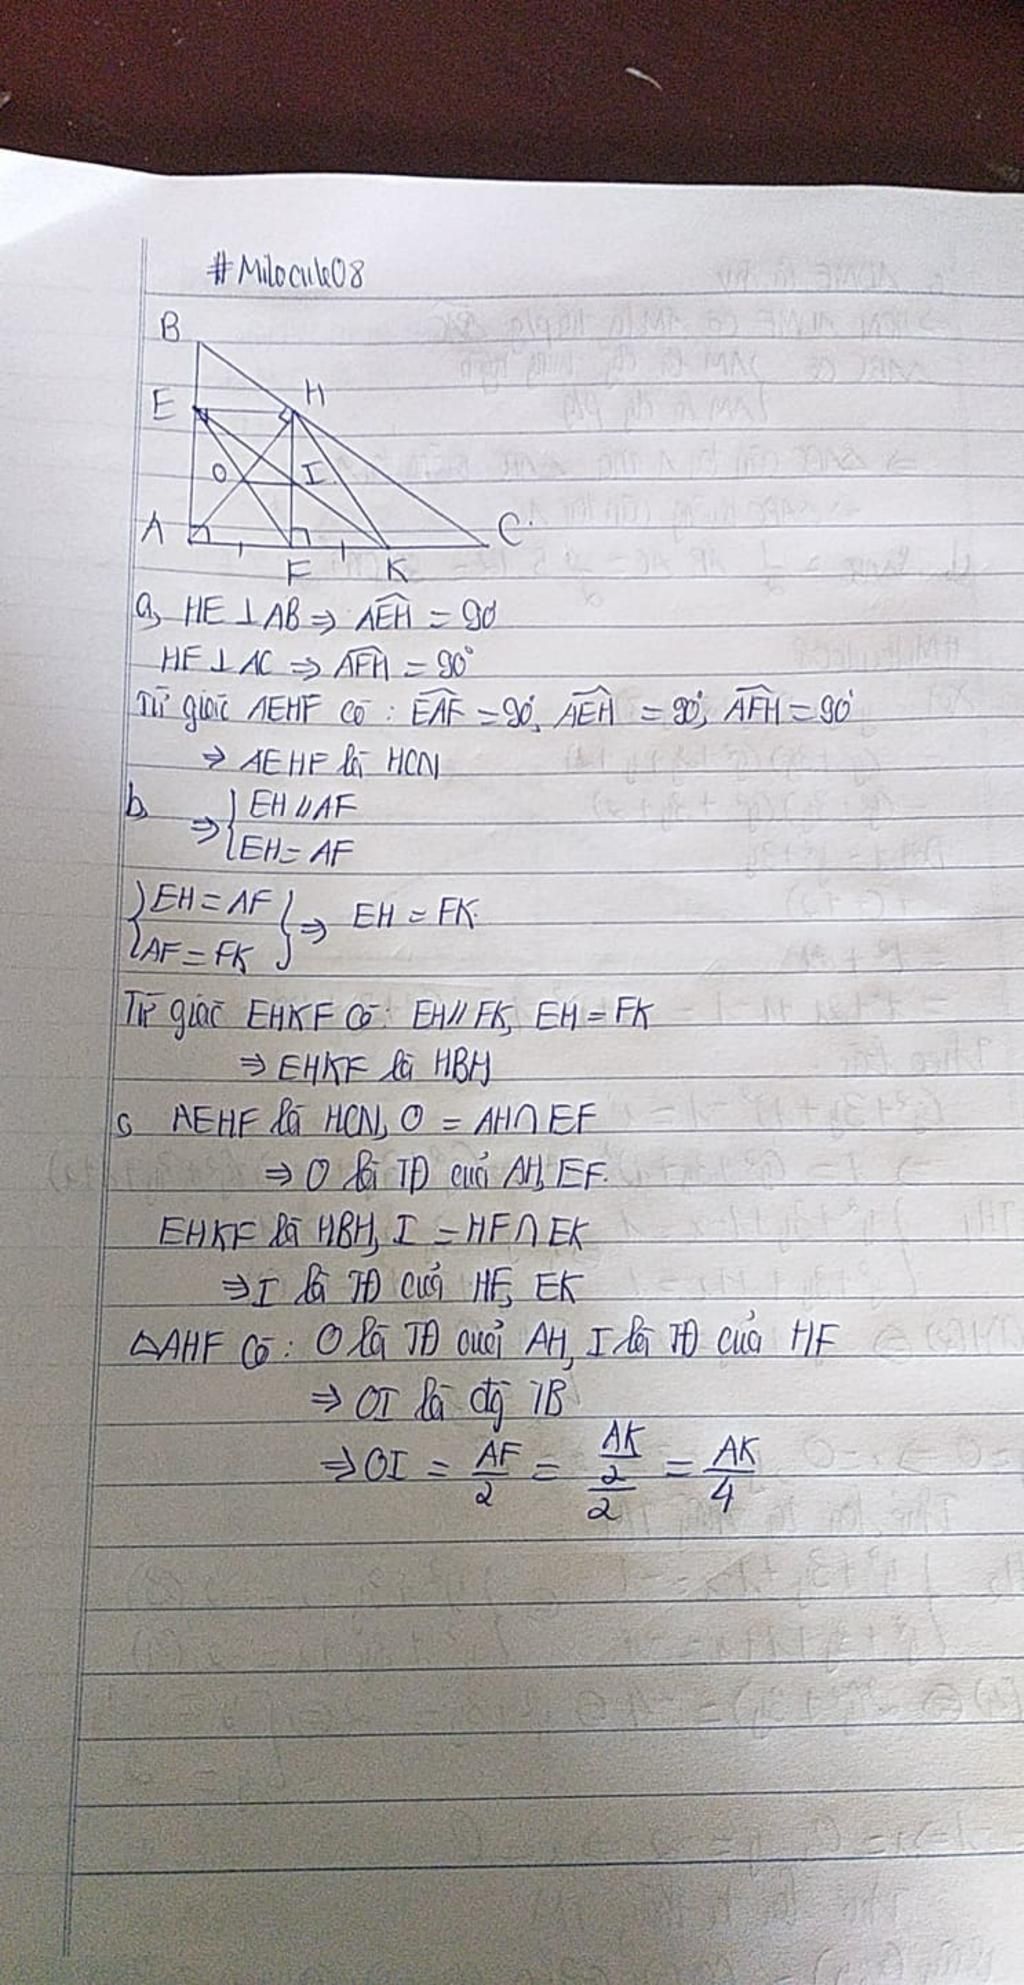 #Milocute08
B
E
H
O
I
A
C
F
K
a, HE ⊥ AB ⇒ AEH = 90°
HF ⊥ AC ⇒ AFH = 90°
Tứ giác AEHF có : EAF = 90°, AEH = 90°, AFH = 90°
⇒ AEHF là HCN
b, ⇒ { EH // AF
EH = AF
{ EH = AF
AF = FK } ⇒ EH = FK
Tứ giác EHKF có: EH // FK, EH = FK
⇒ EHKF là HBH
c, AEHF là HCN, O = AH ∩ EF
⇒ O là TĐ của AH, EF.
EHKF là HBH, I = HF ∩ EK
⇒ I là TĐ của HF, EK
△AHF có : O là TĐ của AH, I là TĐ của HF
⇒ OI là đg TB
⇒ OI = AF/2 = (AK/2)/2 = AK/4